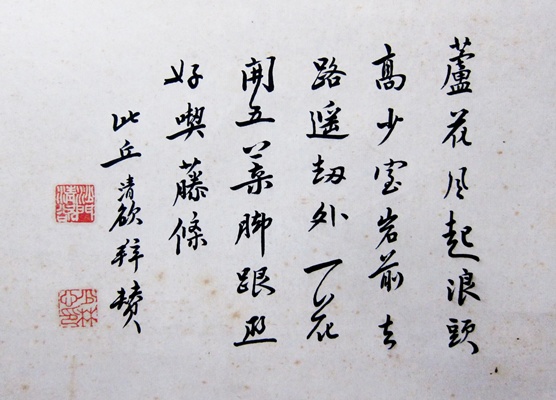 蘆花风起浪頭
高少室岩前去
路遥劫外一花
開五葉脚跟
好喫藤條
比丘清欲拜賛